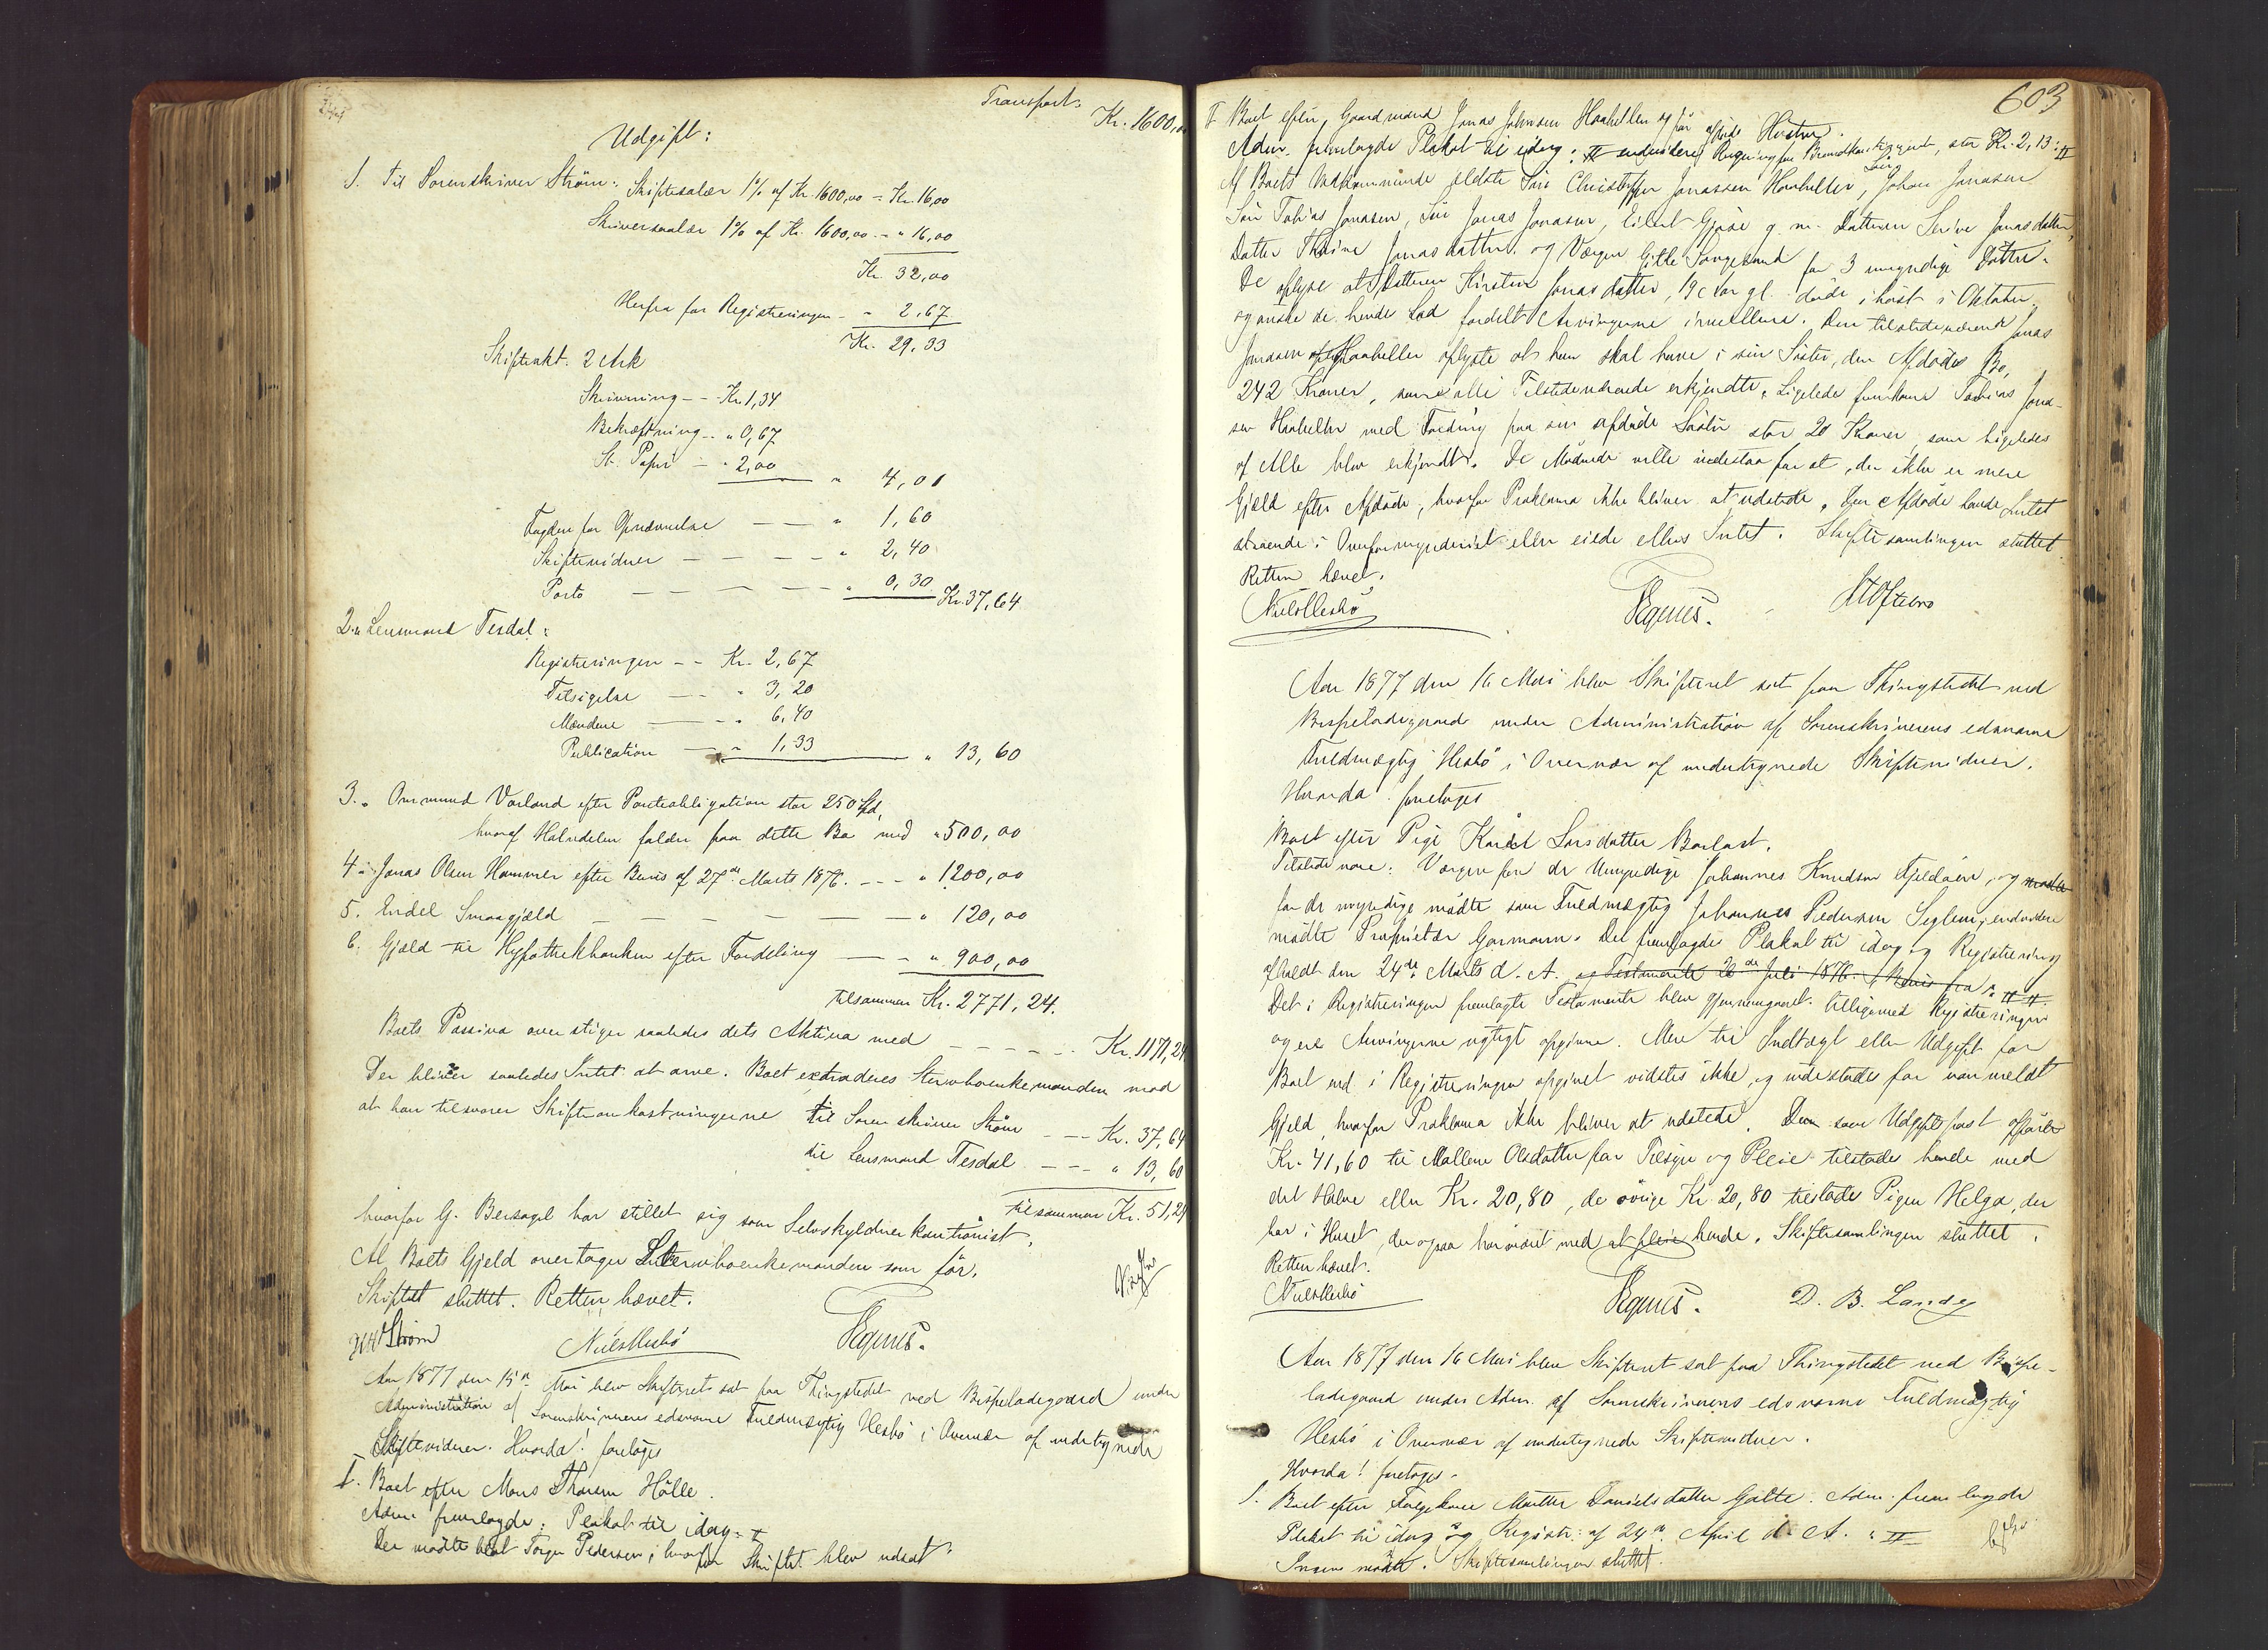 Transport:
Kr. 1600,00
Udgift:
1. Til Sorenskriver Strøm: Skiftesalær 1% af Kr. 1600,00 = Kr. 16,00
Skriversalær 1% af Kr. 1600,00 - " 16,00
Kr. 32,00
Herfra for Registreringen - " 2,67
Kr. 29,33
Skifteakt. 2 Ark
Skrivning - - Kr. 1,34
Bekræftning - " 0,67
St. Papir - " 2,00 " 4,01
Fogden for Opnævnelse - - " 1,60
Skiftevidner - - - - " 2,40
Porto - - - - " 0,30 Kr. 37,64
2. " Lensmand Tesdal:
Registreringen - - Kr. 2,67
Tilsigelse - - " 3,20
Mændene - - " 6,40
Publication - " 1,33 " 13,60
3. " Ommund Varland efter Panteobligation stor 250 Spd,
hvoraf Halvdelen falder paa dette Bo med " 500,00
4. " Jonas Olsen Hammer efter Bevis af 27de Marts 1876. - - - " 1200,00
5. Endel Smaagjæld - - - - - - " 120,00
6. Gjæld til Hypothekbanken efter Fordeling - - " 900,00
tilsammen Kr. 2771,24.
Boets Passiva overstiger saaledes dets Aktiva med - - - - - Kr. 1171,24
Der bliver saaledes Intet at arve. Boet extraderes Stervboenkemanden mod
at han tilsvarer Skifteomkostningerne til Sorenskriver Strøm - - Kr. 37,64
til Lensmand Tesdal - - - " 13,60
tilsammen Kr. 51,24
hvorfor G. Bersagel har stillet sig som Selvskyldnerkautionist.
Al Boets Gjeld overtager Stervboenkemanden som før.
Skiftet sluttet. Retten hævet.
Strøm Niels Hesbø Tegnes.
Aar 1877 den 15de Mai blev Skifteret sat paa Thingstedet ved Bispeladegaard under
Administration af Sorenskriverens edsvorne Fuldmægtig Hesbø i Overvær af undertegnede
Skiftevidner. Hvorda! foretoges
1. Boet efter Mons Thorsen Hölle.
Adm. fremlagde: Plakat til idag: I
Der mødte blot Torger Pedersen, hvorfor Skiftet blev udsat.
603
Boet efter Gaardmand Jonas Johnsen Haahellen og før afdøde Hustru.
Adm. fremlagde Plakat til idag: II endvidere Regning for Brandkontingent, stor Kr. 2,13: II
Af Boets Vedkommende ældste Søn Christoffer Jonassen Haaheller, Søn Johan Jonasen
Søn Tobias Jonasen, Søn Jonas Jonasen, Eilert Gjøse g. m. Datteren Serine Jonasdatter,
Datter Thrine Jonasdatter og Værgen Gitle Songesand for 3 umyndige Døttre.
De oplyse at Datteren Kirsten Jonasdatter, 19 Aar gl. døde i høst i Oktober,
og ønske de hende Lod fordelt Arvingerne imellem. Den tilstedeværende Jonas
Jonasen Haaheller oplyste at han skal have i sin Søster, den Afdødes Bo,
242 Kroner, som alle Tilstedeværende erkjendte. Ligelede fremkom Tobias Jona-
sen Haaheller med Fordring paa sin afdøde Søster stor 20 Kroner som ligeledes
af Alle blev erkjendt. De Mødende ville indestaa for at der ikke er mere
Gjæld efter Afdøde, hvorfor Proklama ikke bliver at udstede. Den Afdøde havde Intet
staaende i Overformynderiet eller eiede ellers Intet. Skiftesamlingen sluttet
Retten hævet.
Niels Hesbø Tegnes.
Aar 1877 den 16 Mai blev Skifteret sat paa Thingstedet ved
Bispeladegaard under Administration af Sorenskriverens edsvorne
Fuldmægtig Hesbø i Overvær af undertegnede Skiftevidner.
Hvorda! foretoges
Boet efter Pige Larsdatter
Tilstede vare: Værgen for de Umyndige Johannes Knudsen Fjeldøen, og
for de myndige mødte som Fuldmægtig Johannes Pedersen Seglem, endvidere
mødte Proprietær Garmann. Det fremlagdes Plakat til idag og Registrering
afholdt den 24de Marts d. A. og Testamente 20de Juli 1876. Bevis fra: II II.
Det i Registreringen fremlagte Testamente blev gjennemgaaet tilligemed Registreringen
og ere Arvingerne rigtigt opgivne. Mere til Indtægt eller Udgift for
Boet end i Registreringen opgivet vidstes ikke, og indestodes for uanmeldt
Gjeld, hvorfor Proklama ikke bliver at udstede. Den som Udgiftspost opførte
Kr. 41,60 til Mallene Olsdatter for Tilsyn og Pleie tilstodes hende med
det Halve eller Kr. 20,80, de øvrige Kr. 20,80 tilstodes Pigen Helga, der
bor i Huset, der ogsaa har været med at pleie hende. Skiftesamlingen sluttet.
Retten hævet.
Niels Hesbø Tegnes. D. B. Lande
Aar 1877 den 16 Mai blev Skifteret sat paa Thingstedet ved Bispe-
ladegaard under Adm. af Sorenskriverens edsvorne Fuldmægtig
Hesbø i Overvær af undertegnede Skiftevidner.
Hvorda! foretoges.
1. Boet efter Marthe Danielsdatter Galte. Adm. fremlagde
Plakat til idag og Registr: af 24de April d. A. : II
Ingen mødte. Skiftesamlingen sluttet.